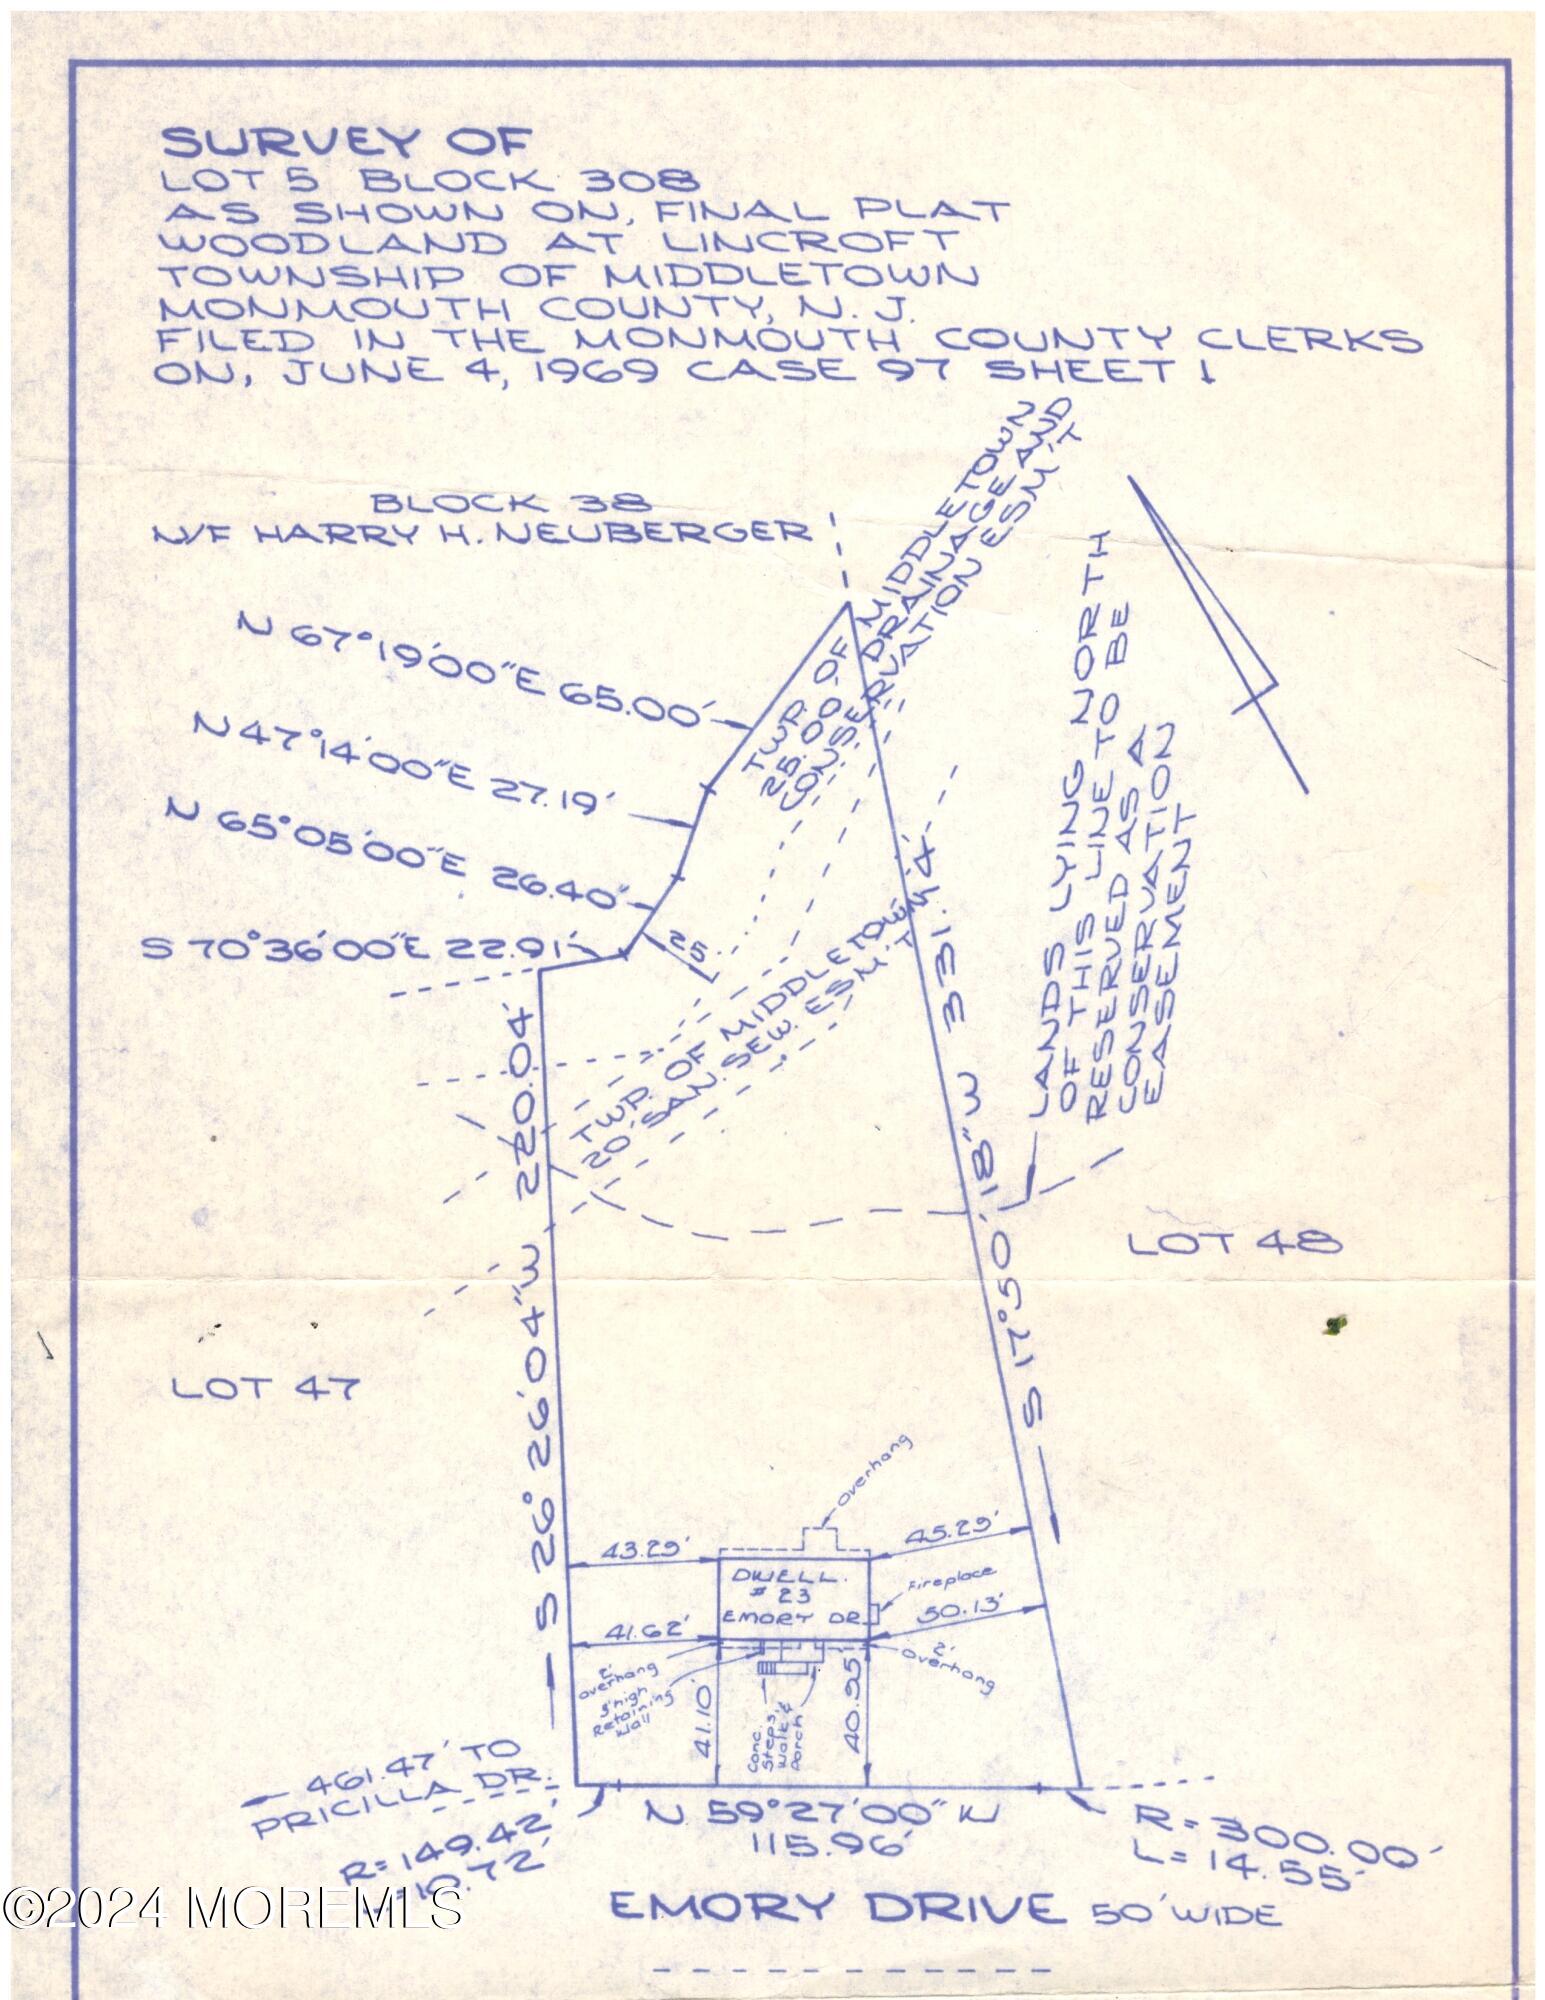 SURVEY OF
LOT 5 BLOCK 308
AS SHOWN ON, FINAL PLAT
WOODLAND AT LINCROFT
TOWNSHIP OF MIDDLETOWN
MONMOUTH COUNTY, N. J.
FILED IN THE MONMOUTH COUNTY CLERKS
ON, JUNE 4, 1969 CASE 97 SHEET 1
BLOCK 38
N/F HARRY H. NEUBERGER
TWP. OF MIDDLETOWN
25.00 DRAINAGE AND
CONSERVATION ESM'T
LANDS LYING NORTH
OF THIS LINE TO BE
RESERVED AS A
CONSERVATION
EASEMENT
N 67°19'00"E 65.00'
N 47°14'00"E 27.19'
N 65°05'00"E 26.40'
S 70°36'00"E 22.91'
25.
TWP. OF MIDDLETOWN
20' SAN. SEW. ESM'T
S 26°26'04"W 220.04'
S 17°50'18"W 331.14'
LOT 48
LOT 47
Overhang
43.29'
45.29'
DWELL.
# 23
EMORY DR.
Fireplace
41.62'
50.13'
2'
Overhang
3'high
Retaining
Wall
2'
Overhang
41.10'
Conc.
Steps,
Walk &
Porch
40.95'
461.47' TO
PRICILLA DR.
R= 149.42'
N 59°27'00" W
115.96'
R= 300.00'
L= 14.55'
EMORY DRIVE 50' WIDE
©2024 MOREMLS